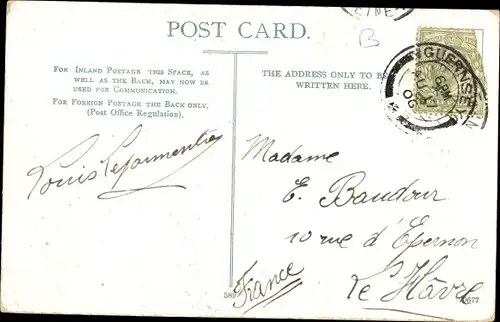 POST CARD.
FOR INLAND POSTAGE THIS SPACE, AS
WELL AS THE BACK, MAY NOW BE
USED FOR COMMUNICATION.
FOR FOREIGN POSTAGE THE BACK ONLY.
(Post Office Regulation).
THE ADDRESS ONLY TO BE
WRITTEN HERE.
B
GUERNSEY
06
Louis
Madame
E. Baudour
10 rue d'Epernon
Le Hâvre
France